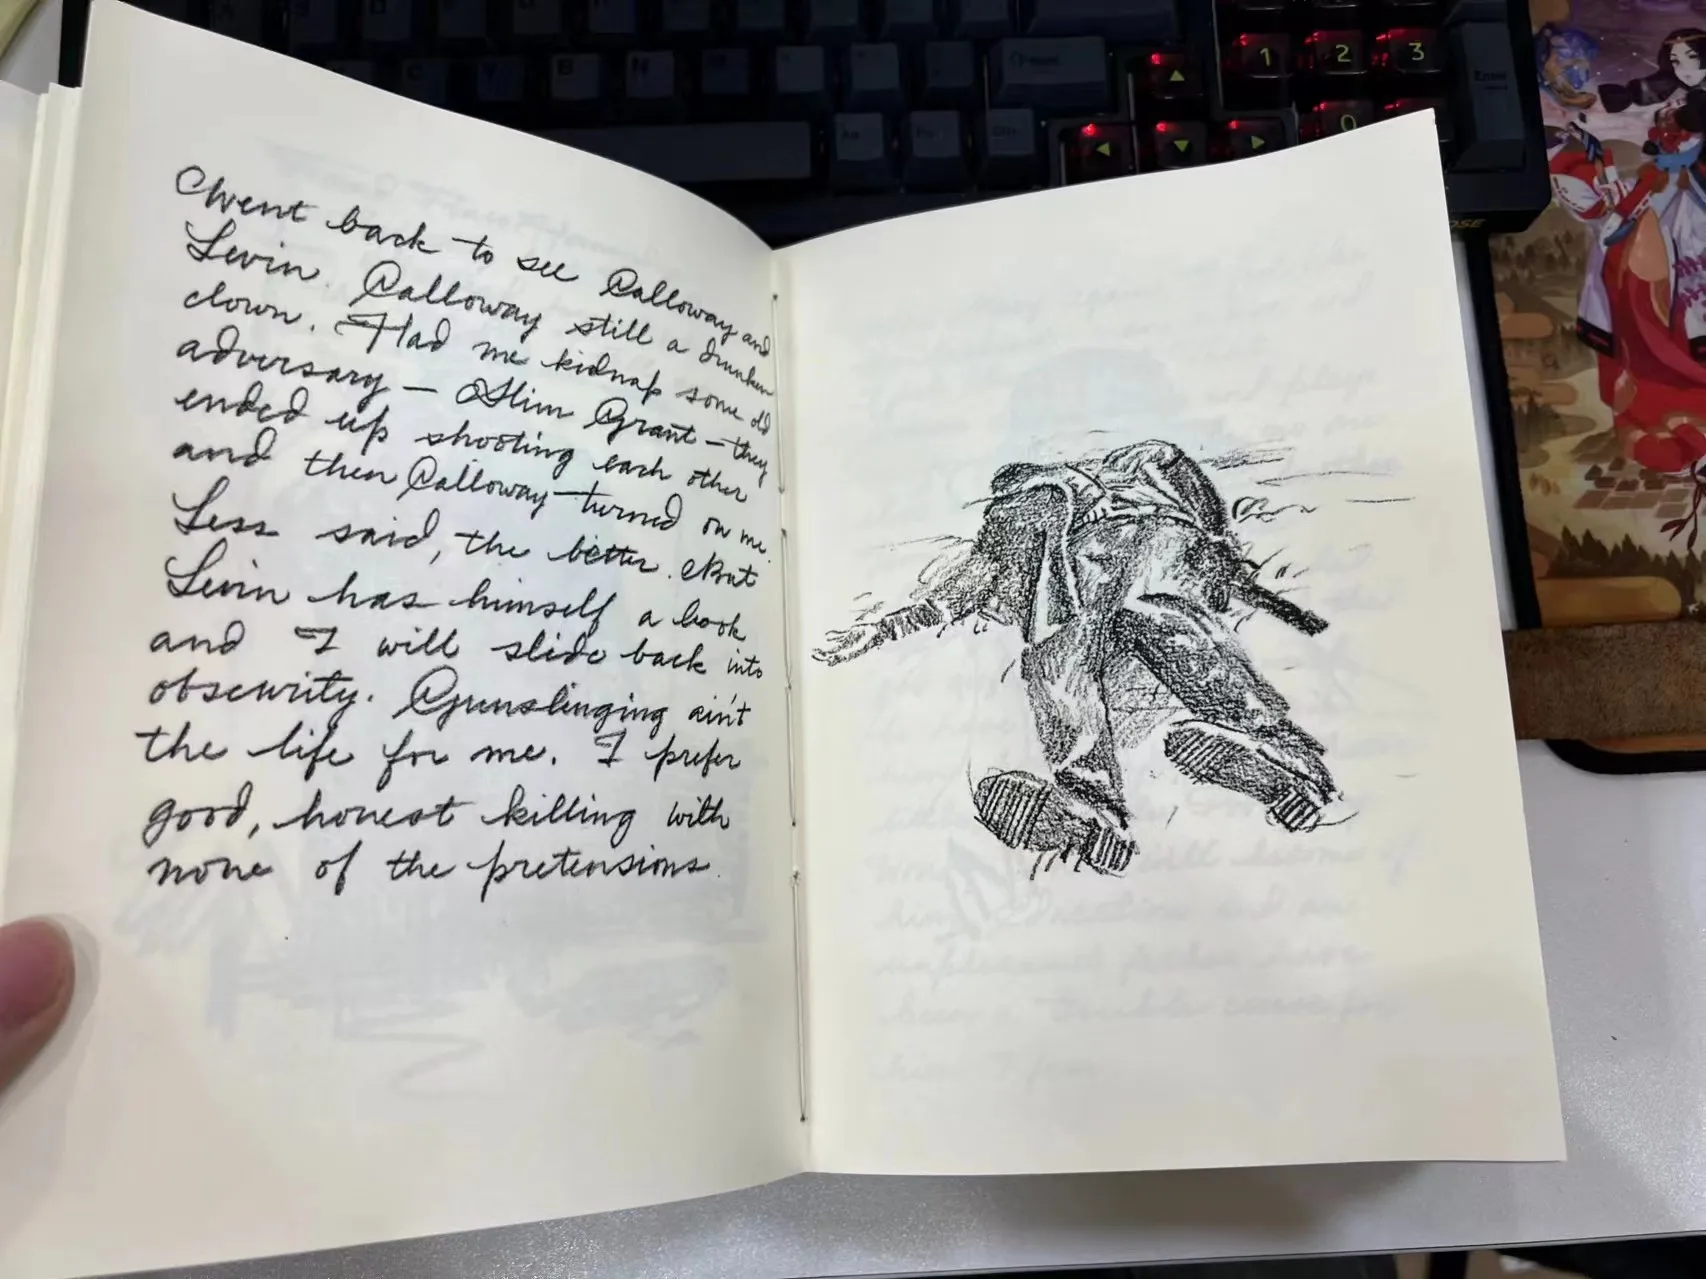 Went back to see Calloway and
Levin. Calloway still a drunken
clown. Had me kidnap some old
adversary — Slim Grant — they
ended up shooting each other
and then Calloway turned on me.
Less said, the better. But
Levin has himself a book
and I will slide back into
obscurity. Gunslinging ain't
the life for me. I prefer
good, honest killing with
none of the pretensions.
1 2 3
0
Enter
C V B N